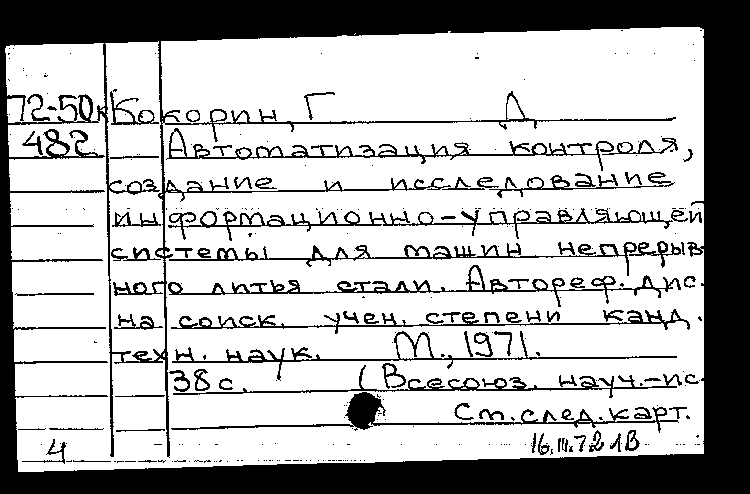 72-50к Кокорин, Г Д
482 Автоматизация контроля,
создание и исследование
информационно-управляющей
системы для машин непрерыв-
ного литья стали. Автореф. дис.
на соиск. учен. степени канд.
техн. наук. М., 1971.
38 с. (Всесоюз. науч.-ис
См. след. карт.
4 16.III.72